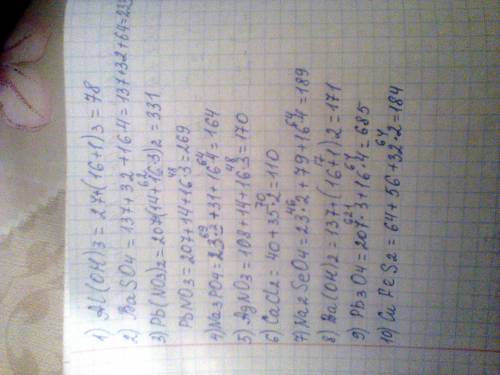 1) Al(OH)3 = 27+(16+1)3 = 78
2) BaSO4 = 137+32+16·4 = 137+32+64=233
3) Pb(NO3)2 = 207+(14+16·3)2 = 331
PbNO3 = 207+14+16·3=269
4) Na3PO4 = 23·3+31+16·4 = 164
5) AgNO3 = 108+14+16·3 = 170
6) CaCl2 = 40+35·2=110
7) Na2SeO4 = 23·2+79+16·4 = 189
8) Ba(OH)2 = 137+(16+1)2 = 171
9) Pb3O4 = 207·3+16·4 = 685
10) CuFeS2 = 64+56+32·2=184